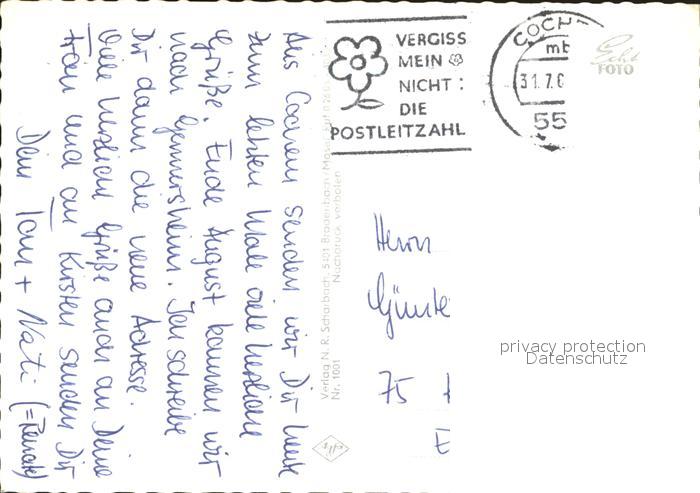 Aus Cochem senden wir Dir heute
zum letzten Male viele herzliche
Grüße. Ende August kommen wir
nach Germersheim. Ich schreibe
Dir dann die neue Adresse.
Viele herzliche Grüße auch an Deine
Frau und an Kirsten senden Dir
Dein Tom + Nati (=Renate)
Verlag N. R. Scharbach, 5401 Brauerbach/Mosel
Nr. 1001 Nachdruck verboten
VERGISS
MEIN
NICHT:
DIE
POSTLEITZAHL
COCH
mb
31.7.6
55
Echt
FOTO
Herrn
Günte
75
E
privacy protection
Datenschutz